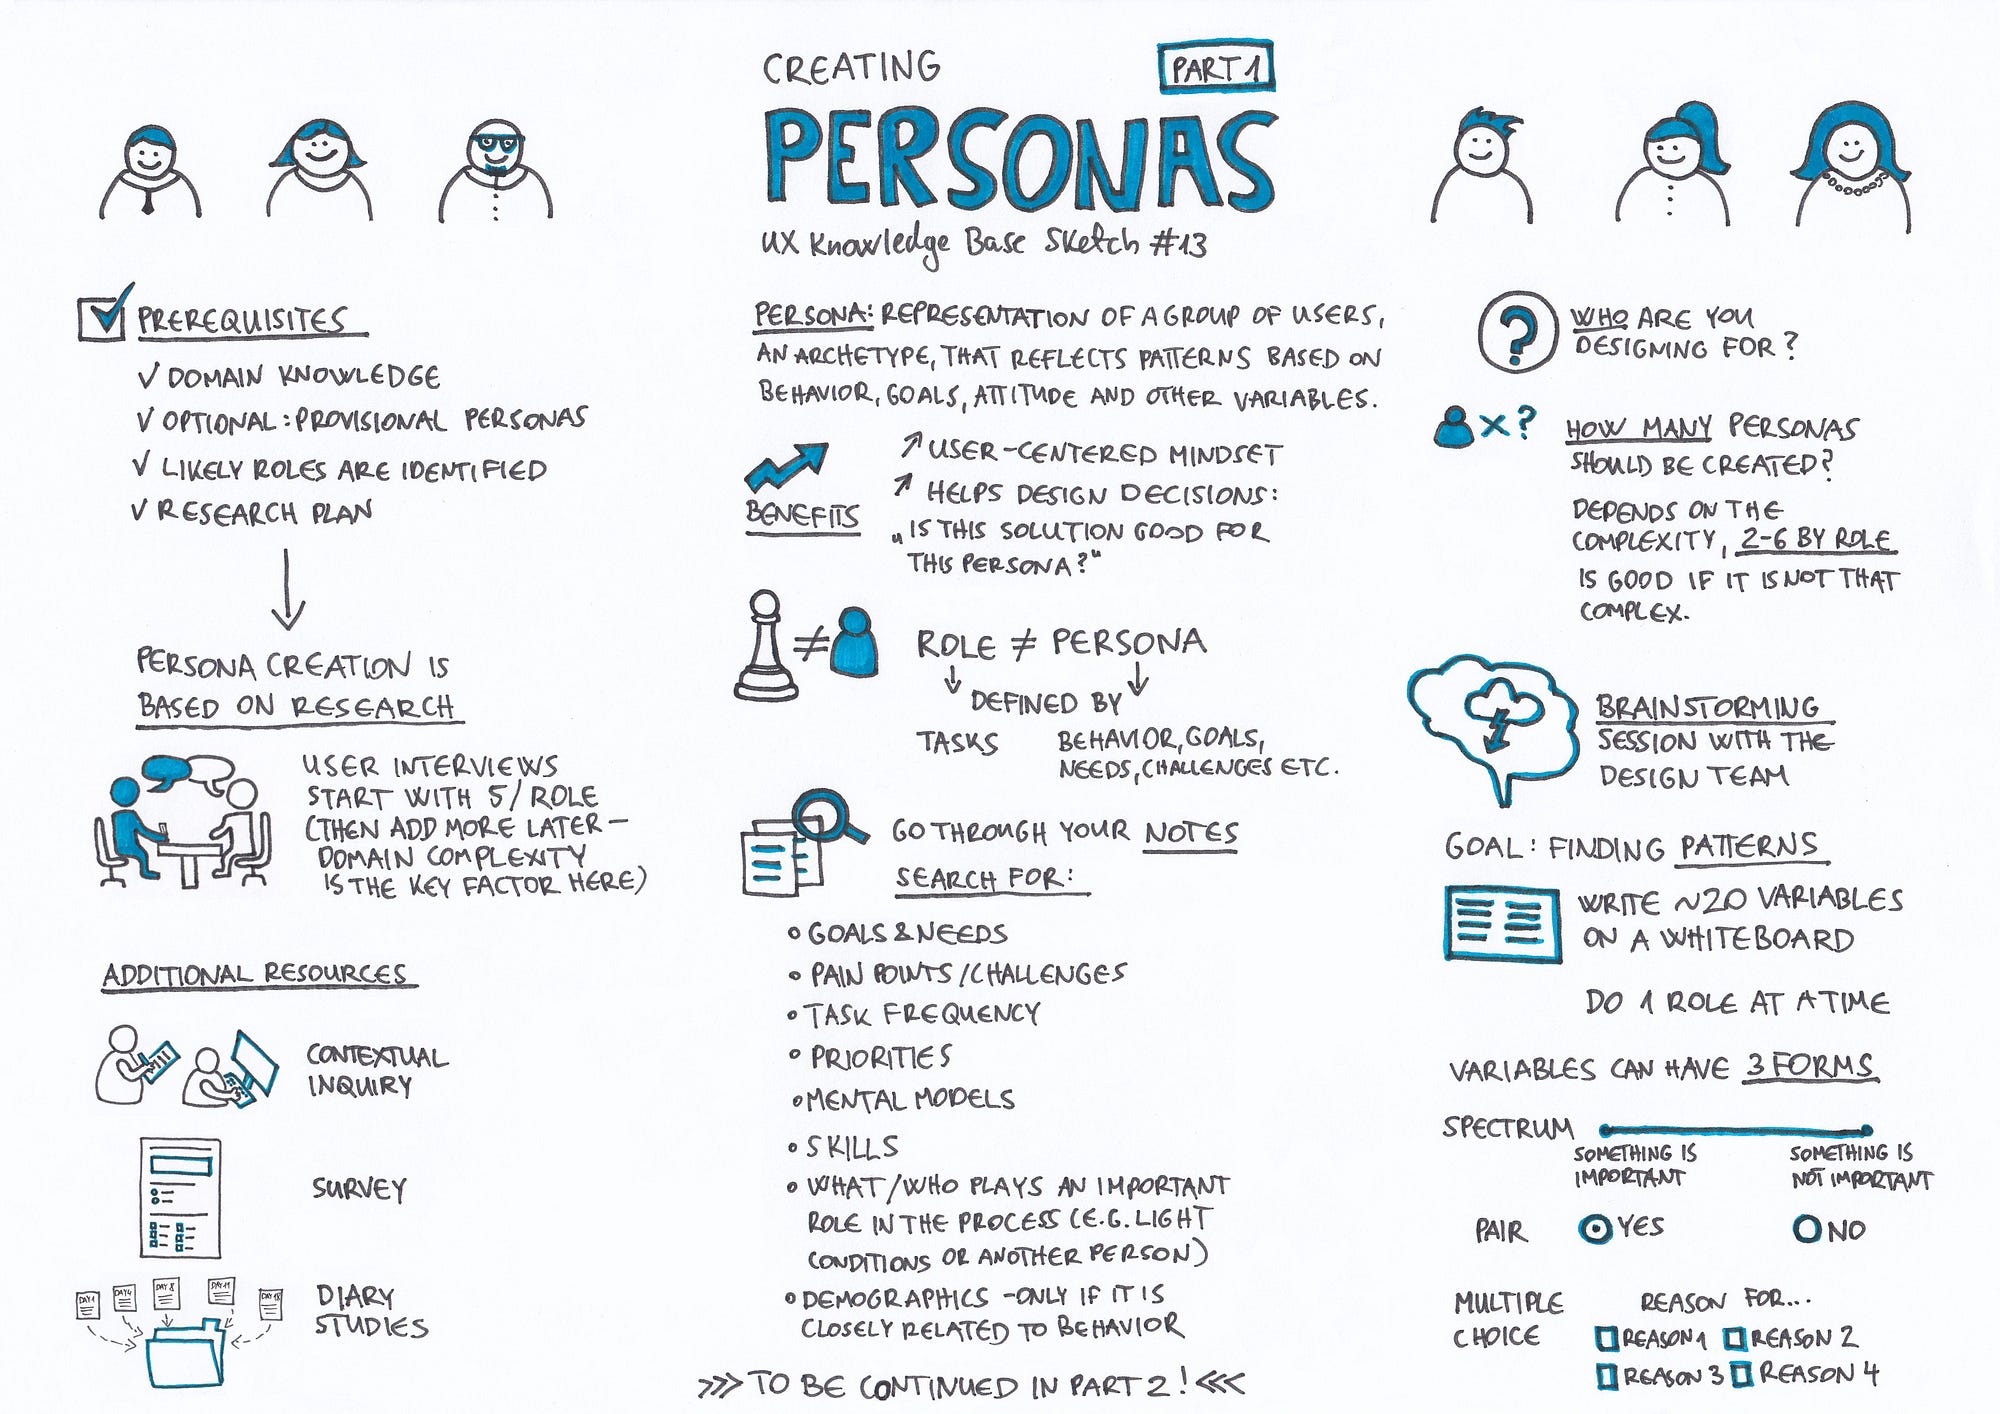 CREATING
PART 1
PERSONAS
UX Knowledge Base Sketch #13
PREREQUISITES
√ DOMAIN KNOWLEDGE
√ OPTIONAL: PROVISIONAL PERSONAS
√ LIKELY ROLES ARE IDENTIFIED
√ RESEARCH PLAN
PERSONA CREATION IS
BASED ON RESEARCH
USER INTERVIEWS
START WITH 5/ROLE
(THEN ADD MORE LATER –
DOMAIN COMPLEXITY
IS THE KEY FACTOR HERE)
ADDITIONAL RESOURCES
CONTEXTUAL
INQUIRY
SURVEY
DAY 1
DAY 4
DAY 8
DAY 11
DAY 15
DIARY
STUDIES
PERSONA: REPRESENTATION OF A GROUP OF USERS,
AN ARCHETYPE, THAT REFLECTS PATTERNS BASED ON
BEHAVIOR, GOALS, ATTITUDE AND OTHER VARIABLES.
BENEFITS
↗ USER-CENTERED MINDSET
↗ HELPS DESIGN DECISIONS:
„IS THIS SOLUTION GOOD FOR
THIS PERSONA?"
≠
ROLE ≠ PERSONA
DEFINED BY
TASKS
BEHAVIOR, GOALS,
NEEDS, CHALLENGES ETC.
GO THROUGH YOUR NOTES
SEARCH FOR:
• GOALS & NEEDS
• PAIN POINTS / CHALLENGES
• TASK FREQUENCY
• PRIORITIES
• MENTAL MODELS
• SKILLS
• WHAT/WHO PLAYS AN IMPORTANT
ROLE IN THE PROCESS (E.G. LIGHT
CONDITIONS OR ANOTHER PERSON)
• DEMOGRAPHICS – ONLY IF IT IS
CLOSELY RELATED TO BEHAVIOR
>>> TO BE CONTINUED IN PART 2! <<<
?
WHO ARE YOU
DESIGNING FOR?
X?
HOW MANY PERSONAS
SHOULD BE CREATED?
DEPENDS ON THE
COMPLEXITY, 2-6 BY ROLE
IS GOOD IF IT IS NOT THAT
COMPLEX.
BRAINSTORMING
SESSION WITH THE
DESIGN TEAM
GOAL: FINDING PATTERNS
WRITE ~20 VARIABLES
ON A WHITEBOARD
DO 1 ROLE AT A TIME
VARIABLES CAN HAVE 3 FORMS
SPECTRUM
SOMETHING IS
IMPORTANT
SOMETHING IS
NOT IMPORTANT
PAIR
YES
NO
MULTIPLE
CHOICE
REASON FOR...
REASON 1
REASON 2
REASON 3
REASON 4